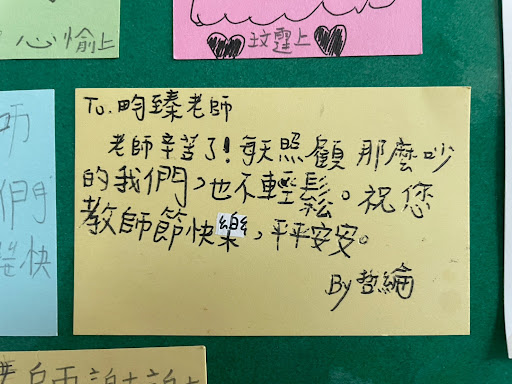 心愉上
玟霆上
To. 畇臻老師
老師辛苦了!每天照顧那麼吵
的我們,也不輕鬆。祝您
教師節快樂,平平安安。
By 哲綸
們
快
老師謝謝